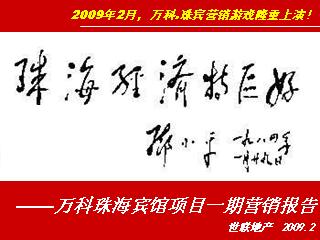 2009年2月，万科·珠宾营销游戏隆重上演！
珠海经济特区好
邓小平
一九八四年
一月廿九日
——万科珠海宾馆项目一期营销报告
世联地产 2009.2